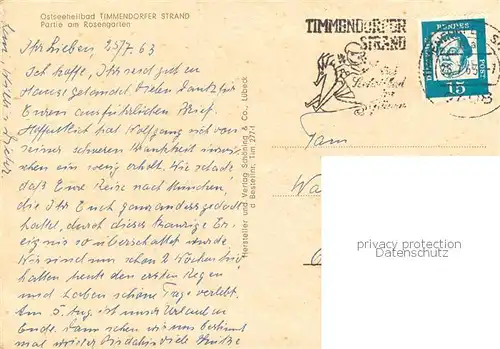 Ostseeheilbad TIMMENDORFER STRAND
Partie am Rosengarten
Ihr Lieben, 25/7. 63
Ich hoffe, Ihr seid gut zu
Hause gelandet. Vielen Dank für
Euren ausführlichen Brief.
Hoffentlich hat Wolfgang sich von
seiner schweren Krankheit inzwi-
schen ein wenig erholt. Wie schade
daß Eure Reise nach München,
die Ihr Euch ganz anders gedacht
hattet, durch dieses traurige Er-
eignis so überschattet wurde.
Wir sind nun schon 2 Wochen hier,
hatten heute den ersten Regen
und haben schöne Tage verlebt.
Am 5. Aug. ist unser Urlaub zu
Ende. Dann sehen wir uns bestimmt
mal wieder. Bis dahin viele Grüße
Hersteller und Verlag Schöning & Co., Lübeck
Bestellnr. Tim 277-I
TIMMENDORFER
STRAND
DEUTSCHE
BUNDES
POST
15
Fam.
privacy protection
Datenschutz